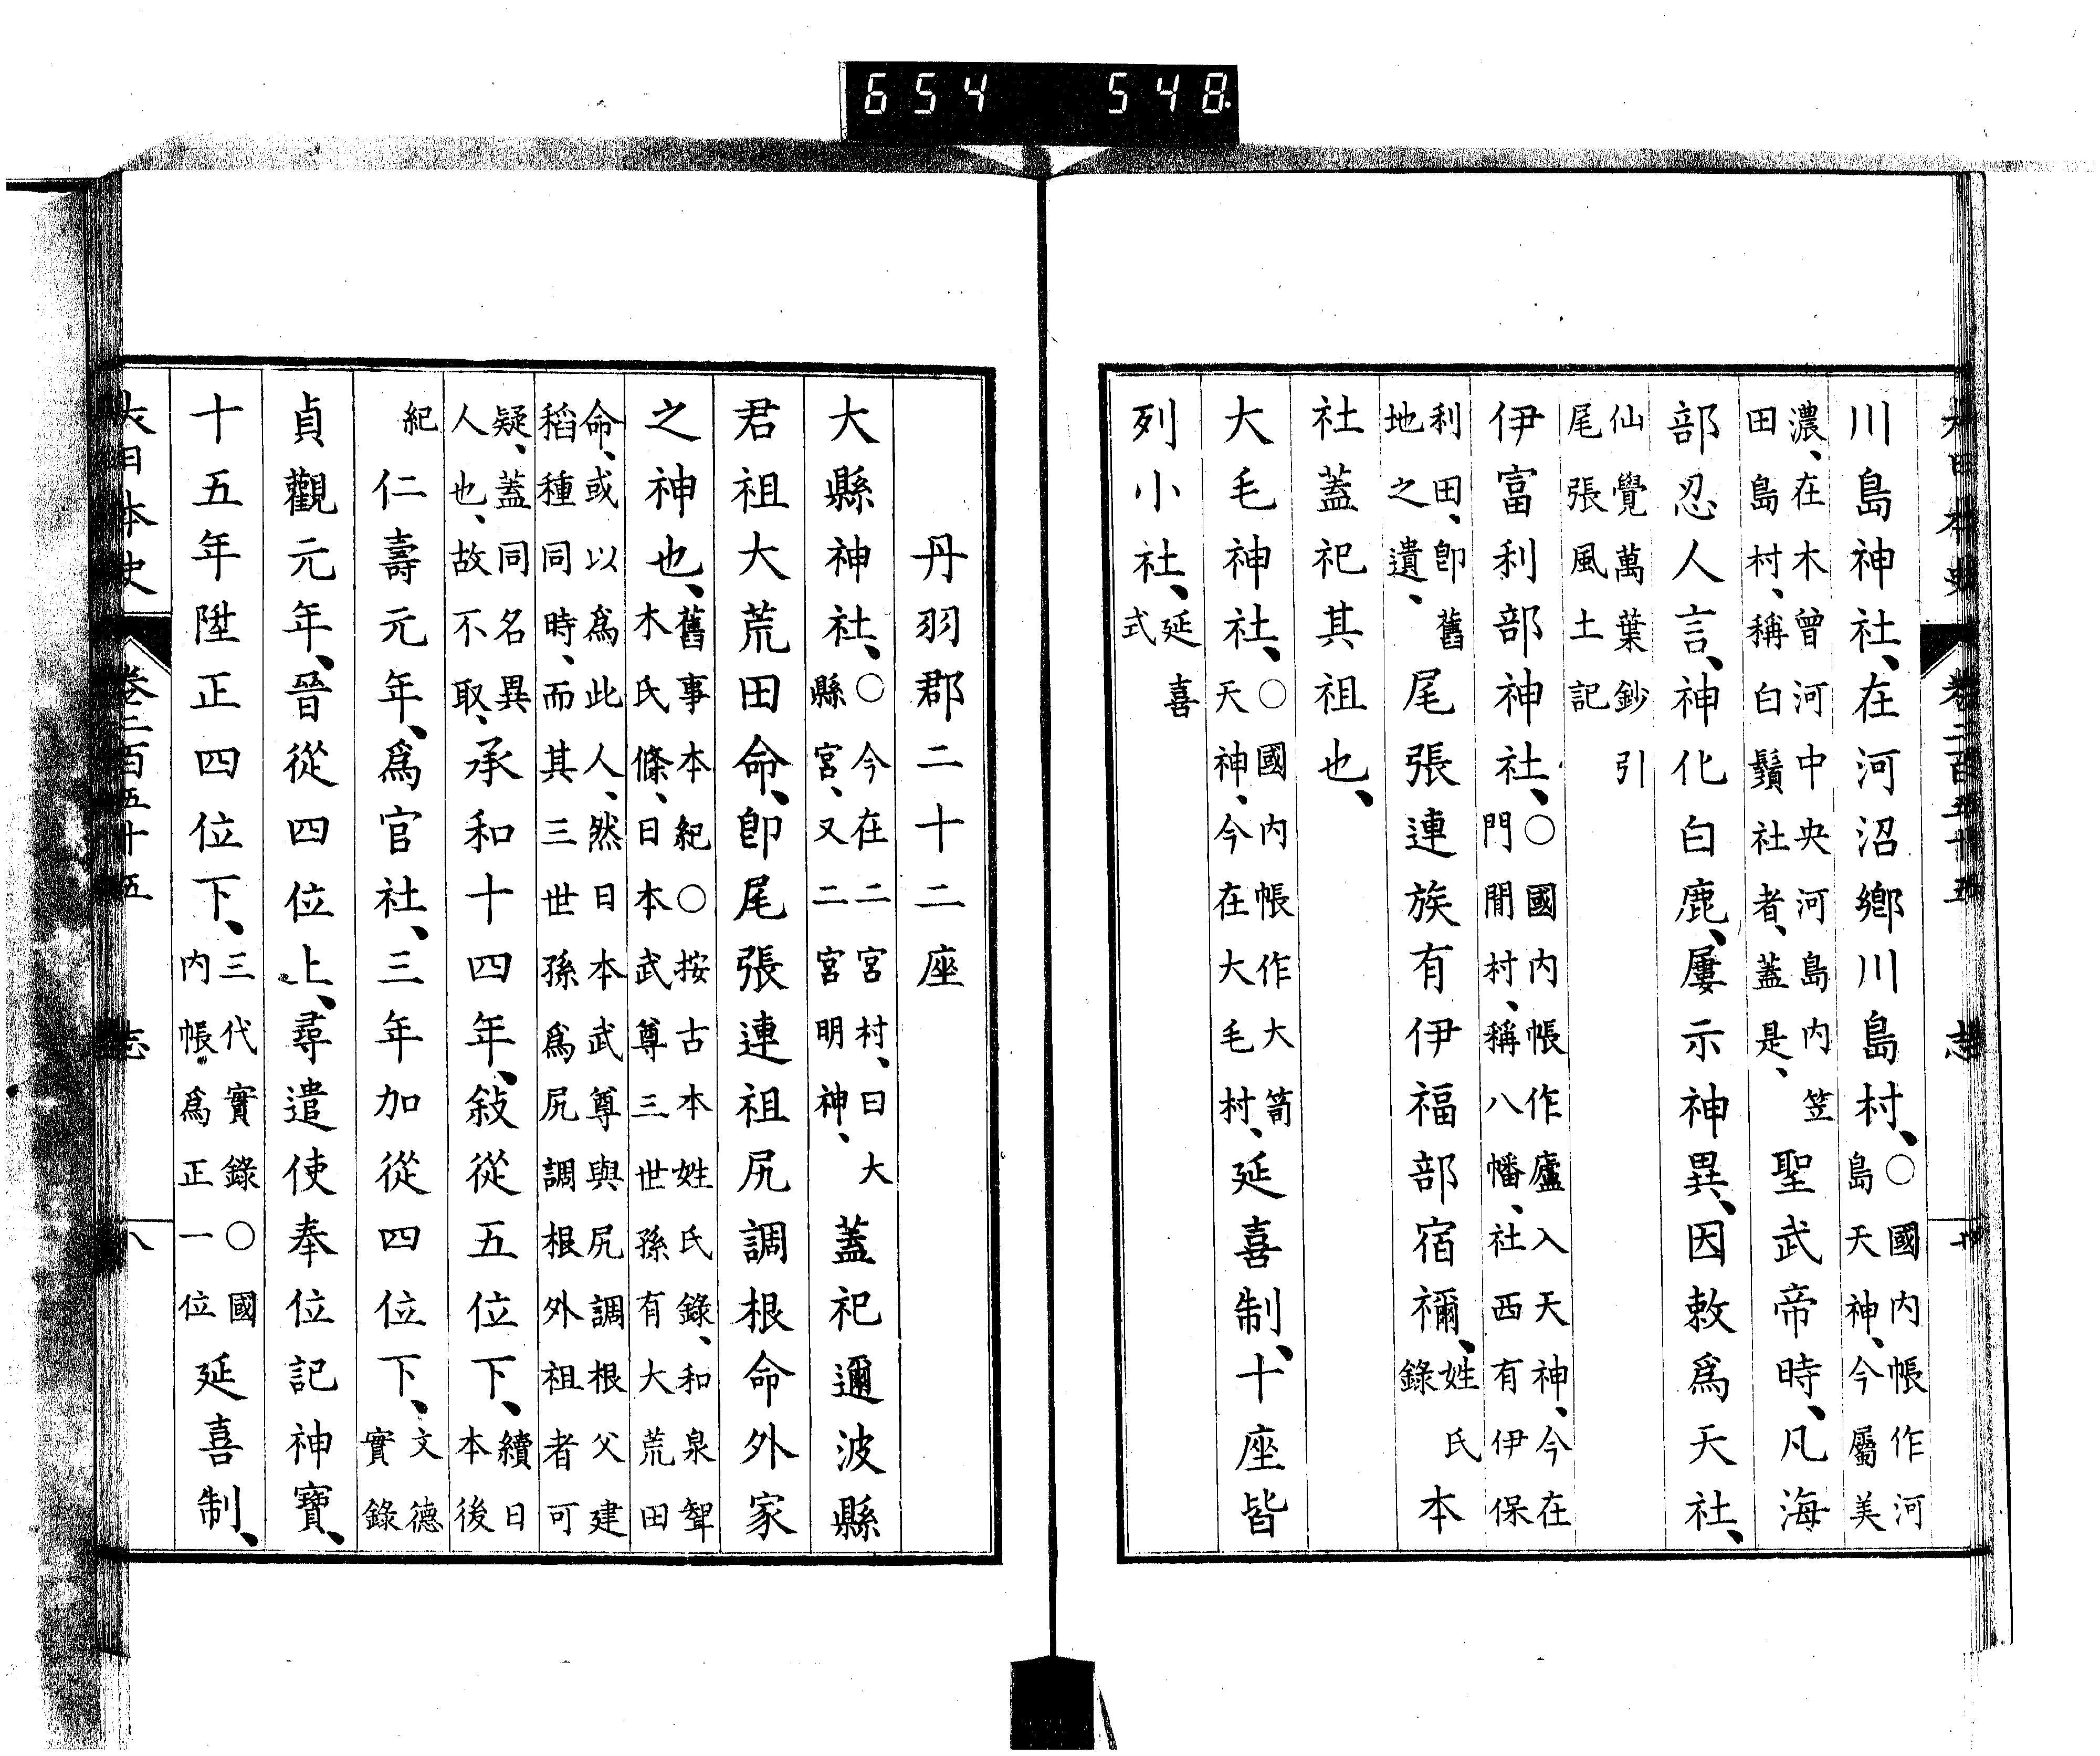 654 548
大日本史 卷二百五十五 志
川島神社、在河沼鄉川島村、○國内帳作河島天神、今屬美
濃、在木曾河中央河島内笠田島村、稱白鬚社者、蓋是、聖武帝時、凡海
部忍人言、神化白鹿、屢示神異、因敕爲天社、
仙覺萬葉鈔引尾張風土記
伊富利部神社、○國内帳作廬入天神、今在門閒村、稱八幡、社西有伊保
利田、卽舊地之遺、尾張連族有伊福部宿禰、姓氏錄本
社蓋祀其祖也、
大毛神社、○國内帳作大笥天神、今在大毛村、延喜制、十座皆
列小社、延喜式
丹羽郡二十二座
大縣神社、○今在二宮村、曰大縣宮、又二宮明神、蓋祀邇波縣
君祖大荒田命、卽尾張連祖尻調根命外家
之神也、舊事本紀○按古本姓氏錄、和泉聟木氏條、日本武尊三世孫有大荒田
命、或以爲此人、然日本武尊與尻調根父建稻種同時、而其三世孫爲尻調根外祖者可
疑、蓋同名異人也、故不取、承和十四年、敍從五位下、續日本後
紀仁壽元年、爲官社、三年加從四位下、文德實錄
貞觀元年、晉從四位上、尋遣使奉位記神寶、
十五年陞正四位下、三代實錄○國内帳爲正一位延喜制、
大日本史 卷二百五十五 志 八